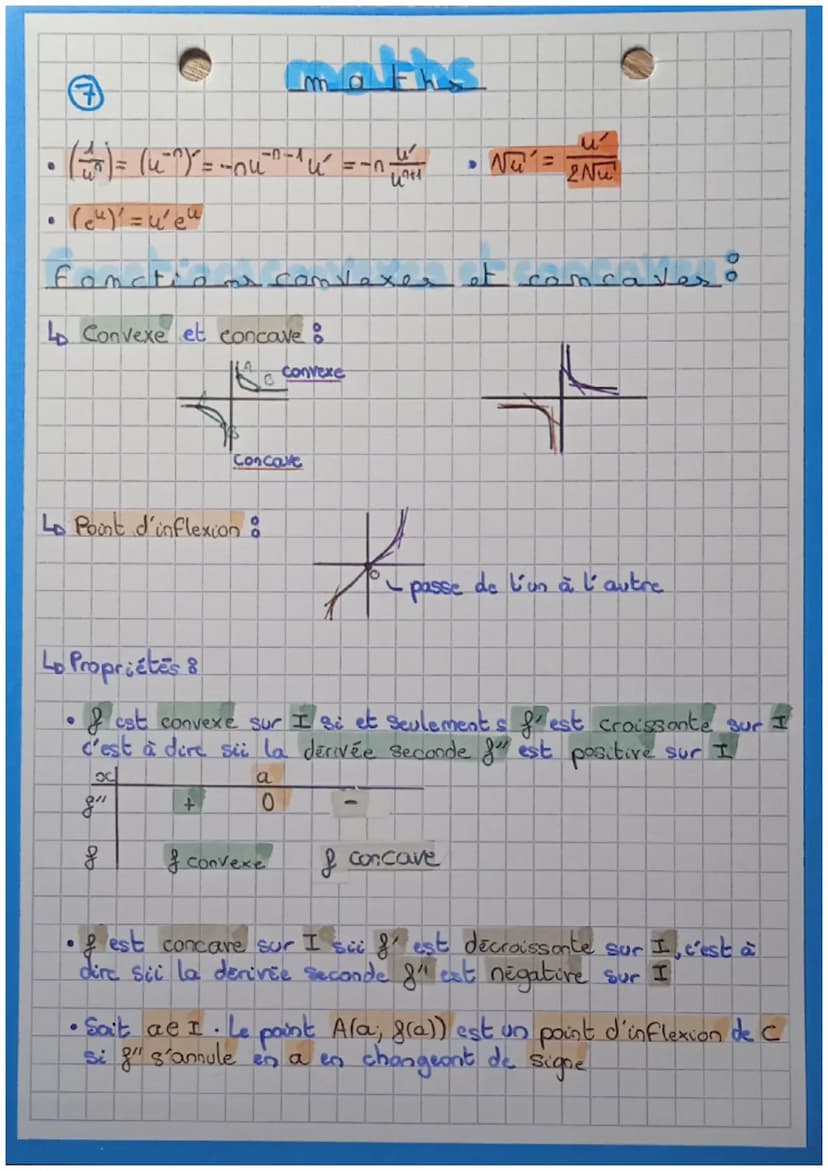 maths
7
• (1/uⁿ)' = (u⁻ⁿ)' = -nu⁻ⁿ⁻¹u' = -n u'/uⁿ⁺¹ • √u' = u'/2√u
• (eᵘ)' = u'eᵘ
Fonctions convexes et concaves :
↳ Convexe et concave :
A
B convexe
Concave
↳ Point d'inflexion :
passe de l'un à l'autre
↳ Propriétés :
• f est convexe sur I si et seulement s f' est croissante sur I
c'est à dire sii la dérivée seconde f'' est positive sur I
x a
f'' + 0 -
f f convexe f concave
• f est concave sur I sii f' est décroissante sur I, c'est à
dire sii la derivée seconde f'' est négative sur I
• Soit a∈I. Le point A(a; f(a)) est un point d'inflexion de C
si f'' s'annule en a en changeant de signe